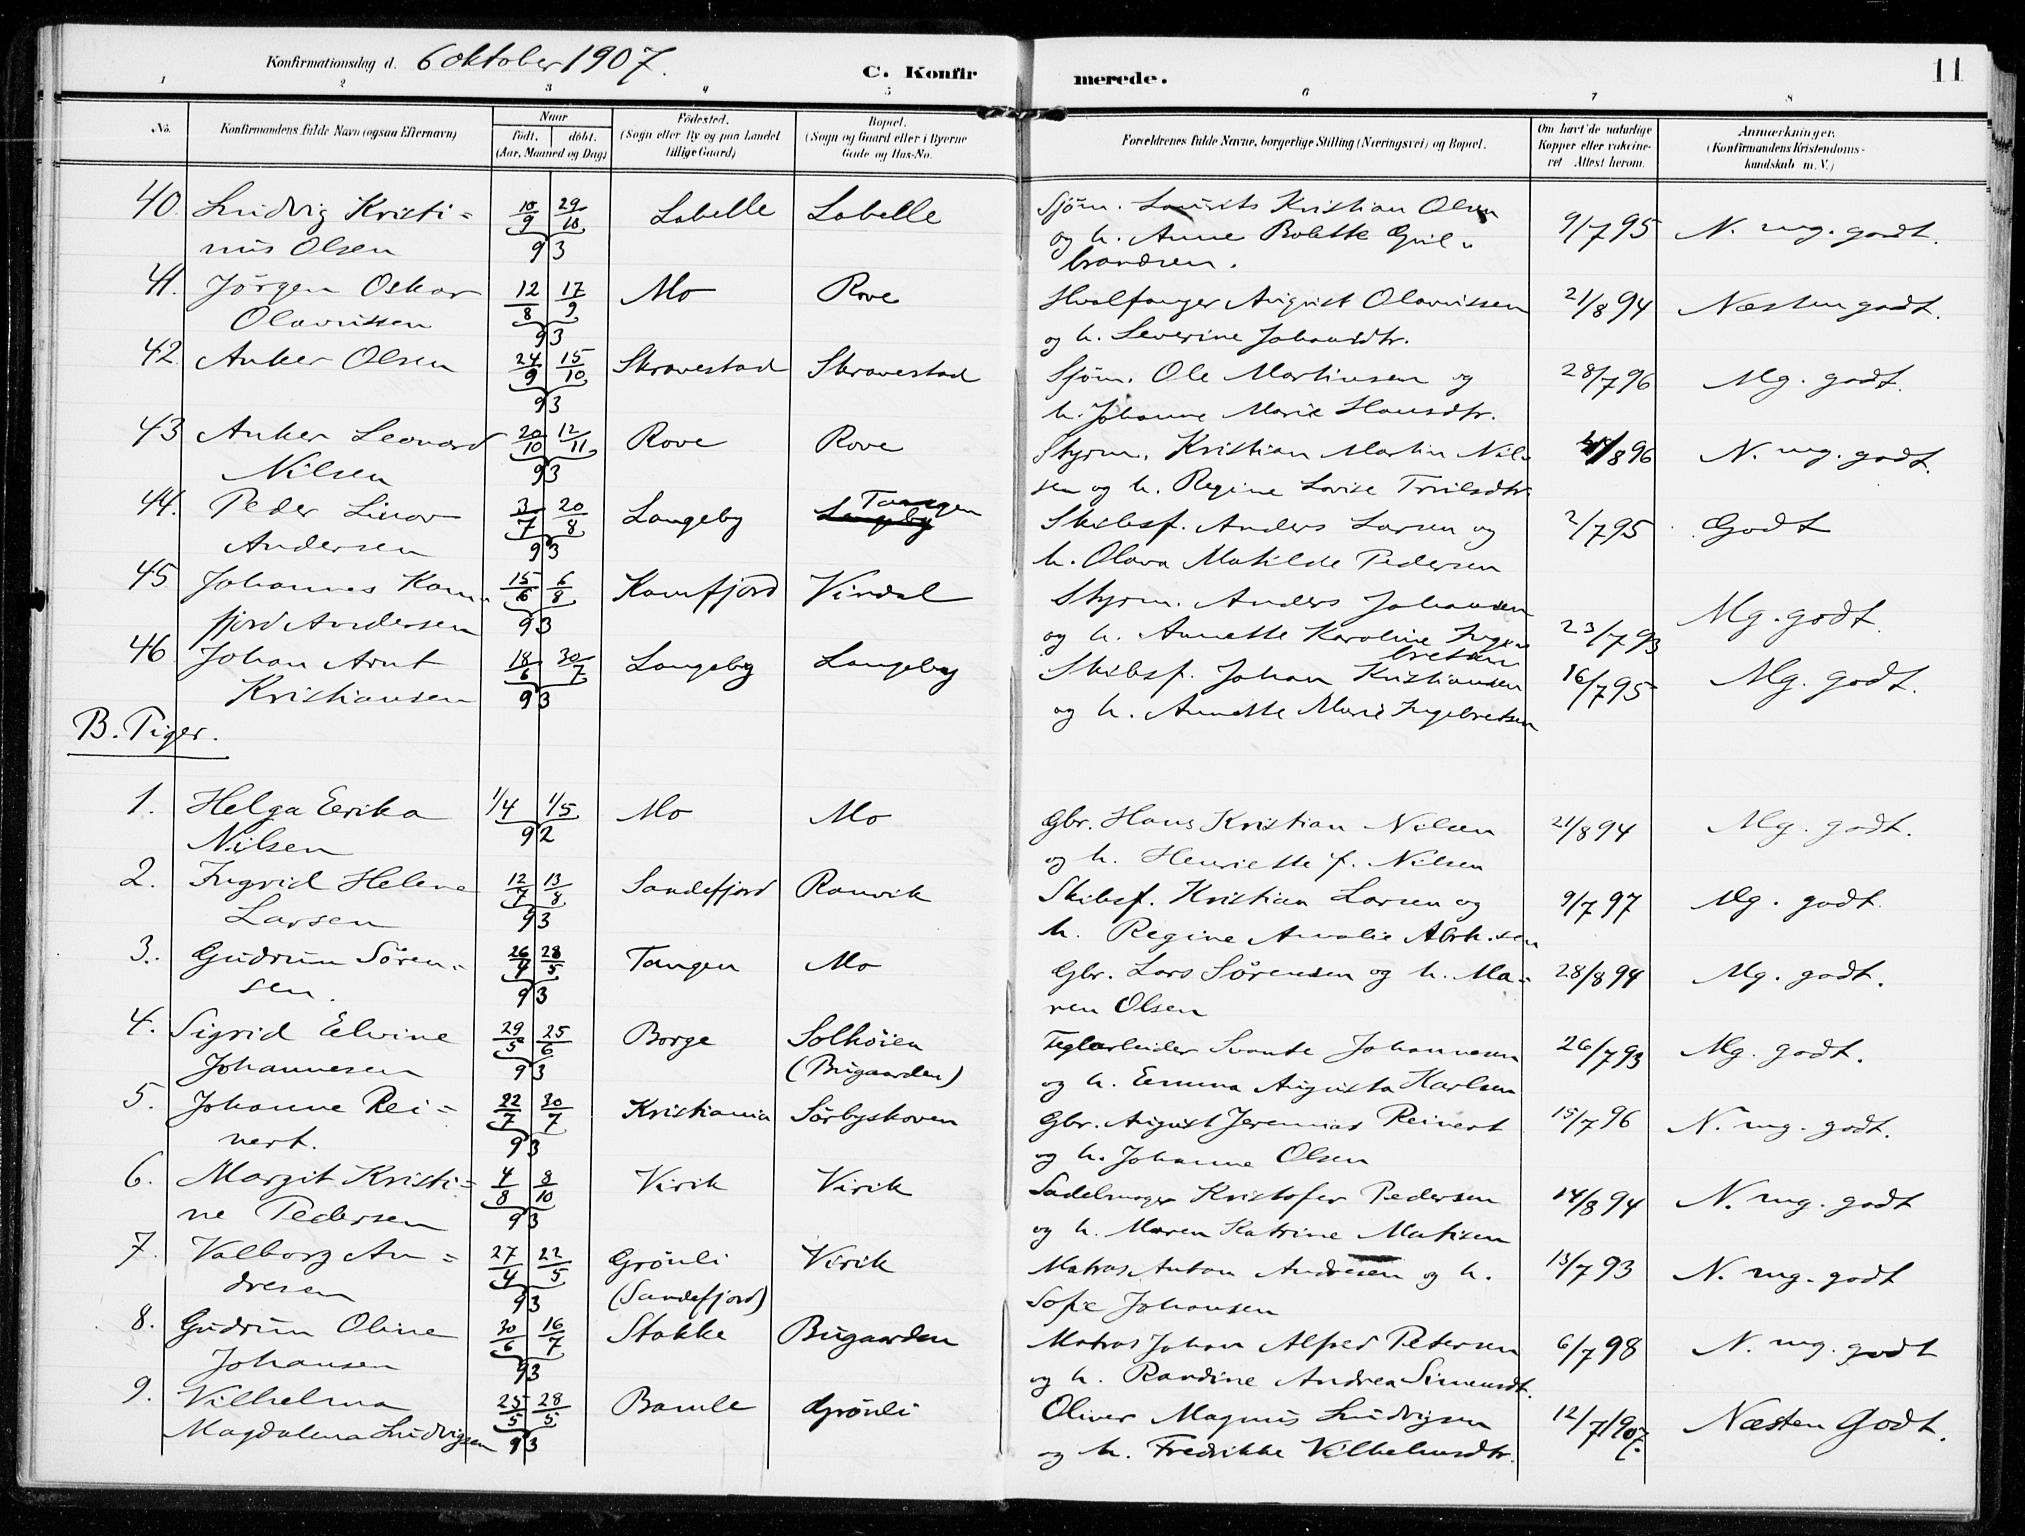 Konfirmationsdag d. 6 oktober 1907.
C. Konfirmerede.
11
1 2 3 4 5 6 7 8
No. Konfirmandens fulde Navn (ogsaa Efternavn) Naar født. døbt. (Aar, Maaned og Dag) Fødested. (Sogn eller By og paa Landet tillige Gaard) Bopæl. (Sogn og Gaard eller i Byerne Gade og Hus-No. Forældrenes fulde Navne, borgerlige Stilling (Næringsvei) og Bopæl. Om havt de naturlige Kopper eller vakcineret Attest herom. Anmærkninger. (Konfirmandens Kristendomskundskab m. V.)
40. Ludvig Kristi= 10/9 29/10 Labelle Labelle Sjøm. Laurits Kristian Olsen 9/7 95 N. mg. godt.
nus Olsen 93 og h. Anne Bolette Gul-
brandsen.
41. Jörgen Oskar 12/8 17/9 Mo Rove Hvalfanger August Olavussen 21/8 94 Næsten godt.
Olavussen 93 og h. Severine Johansdtr.
42 Anker Olsen 24/9 15/10 Skravestad Skravestad Sjøm. Ole Martinsen og 28/7 96 Mg. godt.
93 h. Johanne Marie Hansdtr.
43 Anker Leonard 20/10 12/11 Rove Rove Styrm. Kristian Martin Nil- /8 96 N. mg. godt.
Nilsen 93 sen og h. Regine Lovise Truilsdtr
44. Peder Linov 3/7 20/8 Langeby Langeby Tangen Skibsf. Anders Larsen og 2/7 95 Godt
Andersen 93 h. Olava Matilde Pedersen
45 Johannes Kam- 15/6 6/8 Kamfjord Virdal Styrm. Anders Johansen Mg. godt.
fjord Andersen 93 og h. Annette Karoline Inge- 23/7 93
bretsen
46 Johan Arnt 18/6 30/7 Langeby Langeby Skibsf. Johan Kristiansen 16/7 95 Mg. godt.
Kristiansen 93 og h. Annette Marie Ingebretsen
B. Piger.
1. Helga Eerika 1/4 1/5 Mo Mo Gbr. Hans Kristian Nilsen 21/8 94 Mg. godt.
Nilsen 92 og h. Henriette f. Nilsen
2. Ingrid Helene 12/7 13/8 Sandefjord Ranvik Skibsf. Kristian Larsen og 9/7 97 Mg. godt.
Larsen 93 h. Regine Amalie Abrh.sen
3. Gudrun Sören- 26/4 28/5 Tangen Mo Gbr. Lars Sørensen og h. Ma- 28/8 94 Mg. godt.
sen. 93 ren Olsen
4. Sigrid Elvine 29/5 25/6 Borge Solhöien Teglarbeider Svante Johannesen 26/7 93 Mg. godt.
Johannesen 93 (Bugaarden) og h. Emma Augusta Karlsen
5. Johanne Rei= 22/7 30/7 Kristiania Sörbyskoven Gbr. August Jeremias Reinert 15/7 96 N. mg. godt.
nert. 93 og h. Johanne Olsen
6. Margit Kristi= 4/8 8/10 Virik Virik Sadelmager Kristofer Pedersen 14/8 94 N. mg. godt
ne Pedersen 93 og h. Maren Katrine Matisen
7. Valborg An= 27/4 22/5 Grönli Virik Matros Anton Andresen og h. 13/7 93 N. mg. godt
dresen 93 (Sandefjord) Sofie Johansen
8. Gudrun Oline 30/6 16/7 Stokke Bugaarden Matros Johan Alfred Petersen 6/7 98 N. mg. godt
Johansen 93 og h. Randine Andrea Simensdt.
9. Vilhelma 25/5 28/5 Bamle Grönli Oliver Magnus Ludvigsen 12/7 1907. Næsten Godt.
Magdalena Ludvigsen 93 og h. Fredrikke Vilhelmsdtr.